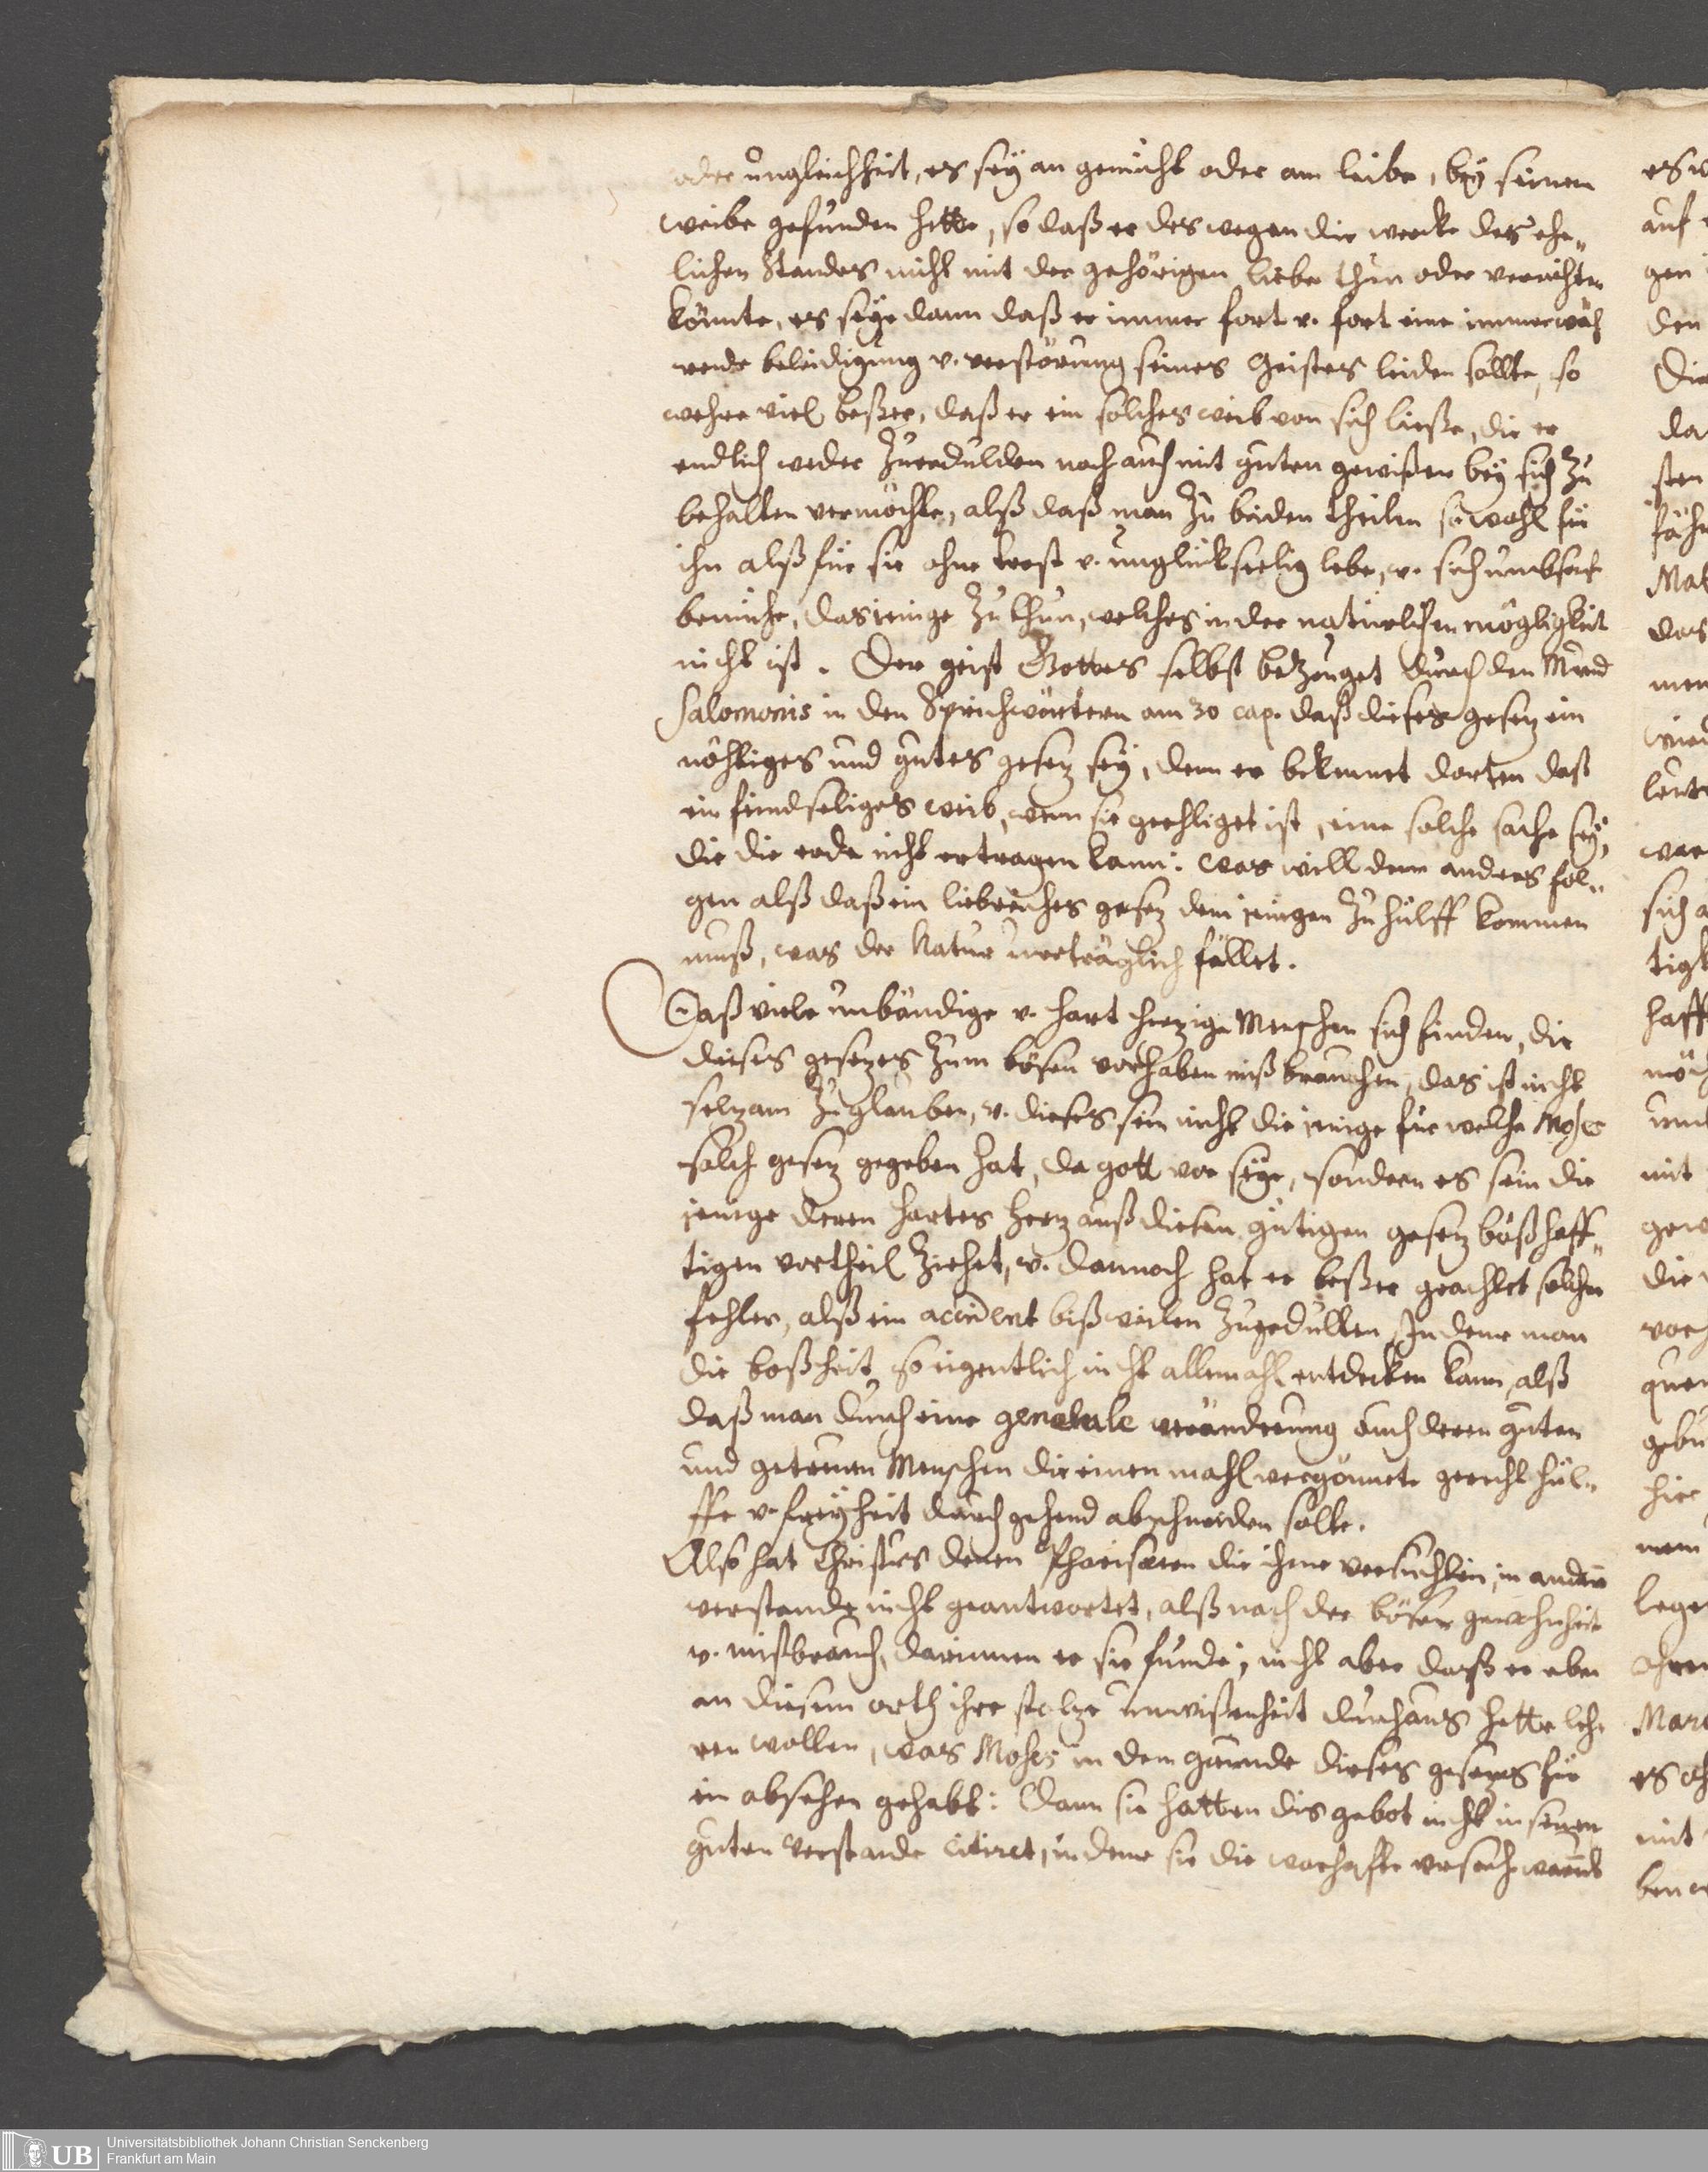 oder ungleichheit, es seÿ an gemüht oder am leibe, beÿ seinem
weibe gefunden hette, so daß er deswegen die wercke des ehe„
lichen Standes nicht mit der gehörigen liebe thun oder verrichten
könnte, es seÿe dann daß er immer fort v. fort eine immerwäh
rende beleidigung v. verstörung seines Geistes leiden sollte, so
wehre viel beßer, daß er ein solches weib von sich ließe, die er
endlich weder zuerdulden noch auch mit guten gewißen beÿ sich zu
behalten vermöchte, alß daß man zu beiden theilen so wohl für
ihn alß für sie ohne trost v. unglückseelig lebe, v. sich umbsonst
bemühe, dasienige zu thun, welches in der natürlichen mögligkeit
nicht ist. Der geist Gottes selbst bezeuget durch den Mund
Salomonis in den Sprichwörtern am 30 cap. daß dieses gesetz ein
nöhtiges und gutes gesetz seÿ, denn er bekennet dorten daß
ein feindseliges weib, wenn sie geehliget ist, eine solche sache seÿ,
die die erde nicht ertragen kann: was will dem anders fol„
gen alß daß ein liebreiches gesetz dem ienigen zu hülff kommen
muß, was der Natur unerträglich fället.
Daß viele unbändige v. hart hertzige Menschen sich finden, die
dieses gesetzes zum bösen vorhaben mißbrauchen, das ist nicht
seltzam zu glauben, v. dieses sein nicht die ienige für welche Moses
solch gesetz gegeben hat, da gott vor seÿe, sondern es sein die
ienige deren hartes hertz auß diesen gütigen gesetz boßhaff„
tigen vortheil ziehet, v. dannoch hat er beßer geachtet solchen
fehler, alß ein accident bißweilen zugedulten Indeme man
die boßheit so eigentlich nicht allemahl entdecken kann, alß
daß man durch eine generale veränderung auch deren guten
und getreuen Menschen die einen mahl vergönnete gerecht hül„
ffe v. freÿheit durch gehend abschneiden solte.
Also hat Christus denen Phariseern die ihene versuchten, in andern
verstande nicht geantwortet, alß nach der bösen gewohnheit
v. mißbrauch, darinnen er sie funde; nicht aber daß er eben
an diesem orth ihre stoltze unwißenheit durchaus hette leh-
ren wollen, was Moses in dem grunde dieses gesetzes für
ein absehen gehabt: Dann sie hatten dis gebot nicht in seinem
guten Verstande citiret, indeme sie die warhafte ursach warumb
Universitätsbibliothek Johann Christian Senckenberg
Frankfurt am Main
UB